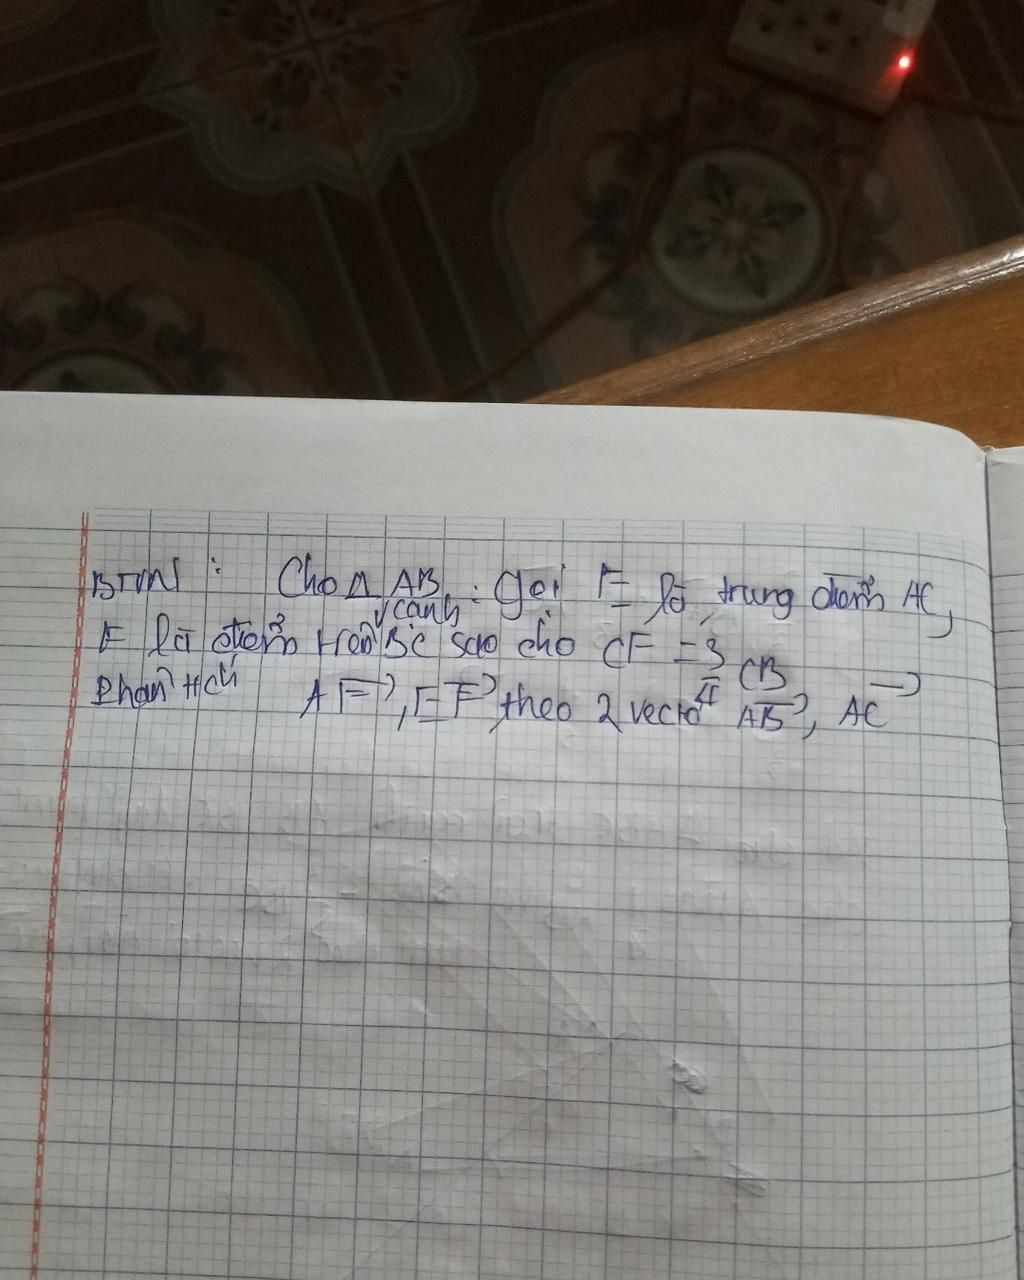 BTVN : Cho Δ AB : gọi E là trung điểm AC,
F là điểm trên cạnh BC sao cho CF = 3/4 CB
Phân tích AF→, EF→ theo 2 vectơ AB→, AC→